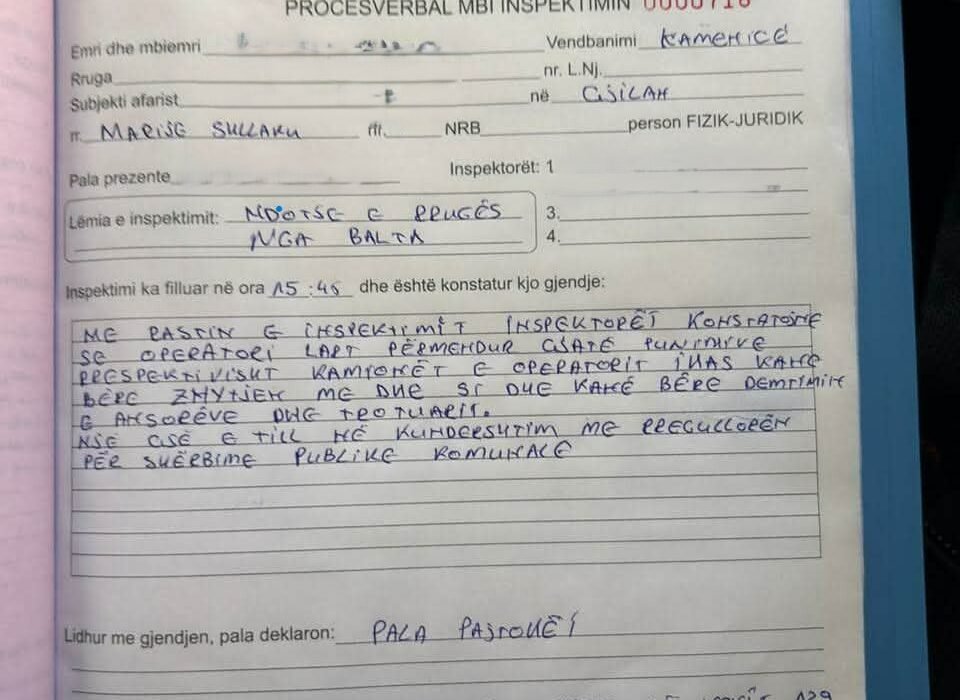 PROCESVERBAL MBI INSPEKTIMIN 0000716
Emri dhe mbiemri Vendbanimi KAMENICË
Rruga nr. L.Nj.
Subjekti afarist në GJILAN
rr. MARIJE SHLLAKU nr. NRB person FIZIK-JURIDIK
Pala prezente Inspektorët: 1
Lëmia e inspektimit: NDOTJE E RRUGËS 3.
NGA BALTA 4.
Inspektimi ka filluar në ora 15:45 dhe është konstatur kjo gjendje:
ME RASTIN E INSPEKTIMIT INSPEKTORËT KONSTATOJNË
SE OPERATORI LART PËRMENDUR GJATË PUNIMEVE
PRESPEKTIVISHT KAMIONËT E OPERATORIT KANË
BËRË ME DHE SI DHE KANË BËRË DEMTIMIN
E ANSORËVE DHE TROTUARIT.
NJË GJË E TILL NË KUNDERSHTIM ME RREGULLOREN
PËR SHËRBIME PUBLIKE KOMUNALE
Lidhur me gjendjen, pala deklaron: PALA PAJTOHËT
129